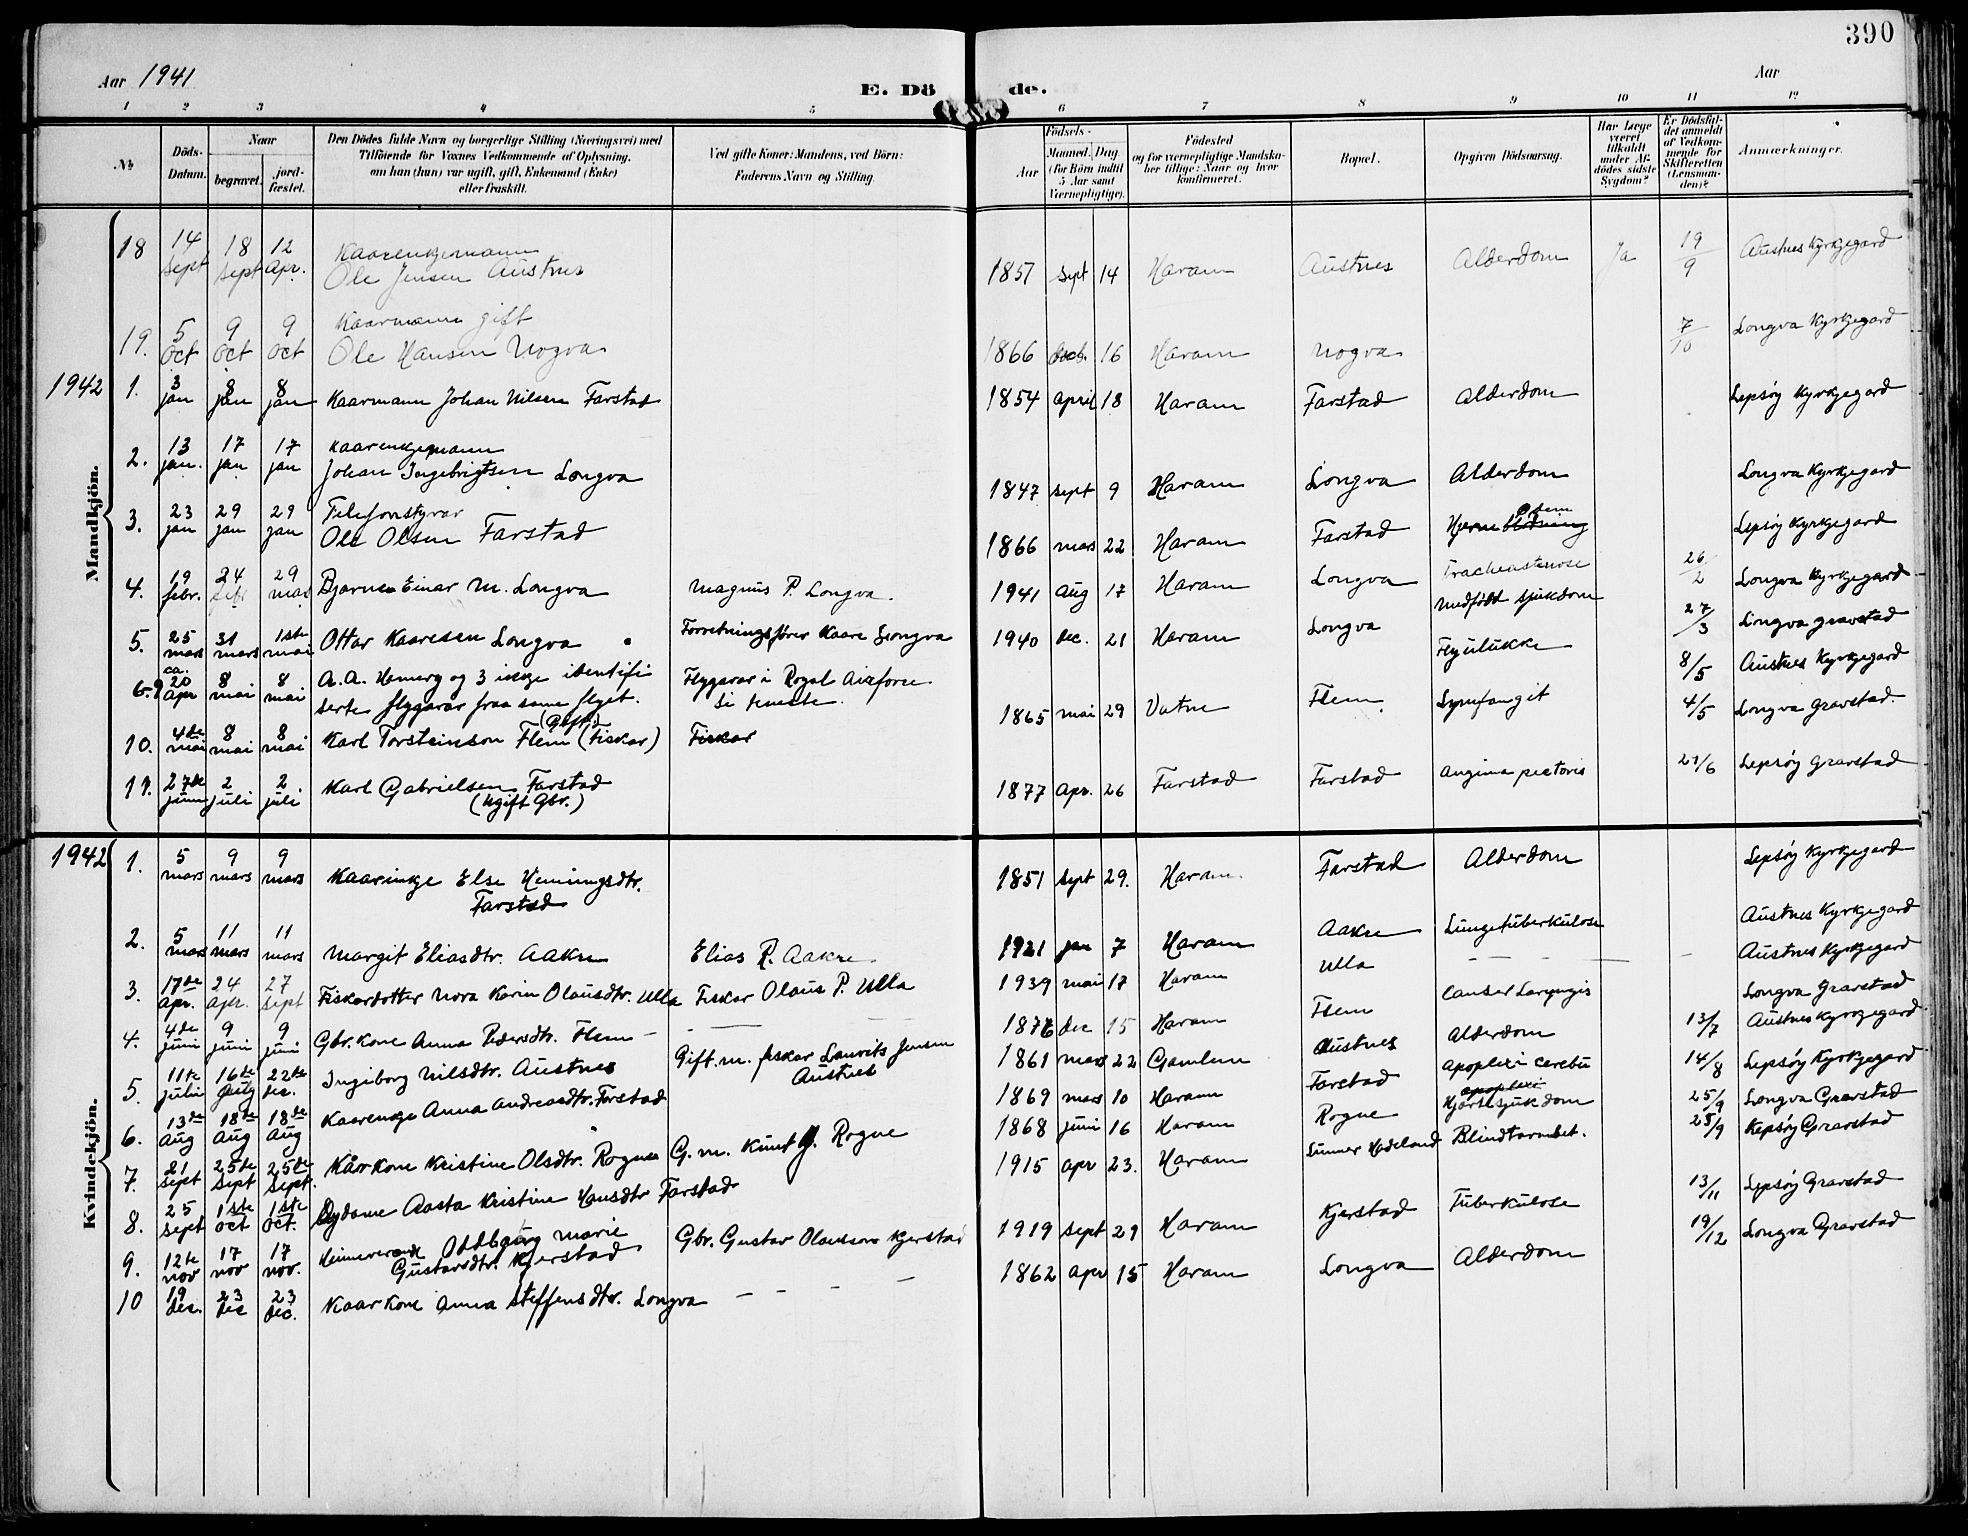 390
Aar 1941
E. Dö de.
Aar
1 2 3 4 5 6 7 8 9 10 11 12
№
Döds-Datum.
Naar
begravet.
jord-fæstet.
Den Dödes fulde Navn og borgerlige Stilling (Næringsvei) med
Tilföiende for Voxnes Vedkommende af Oplysning,
om han (hun) var ugift, gift, Enkemand (Enke)
eller fraskilt.
Ved gifte Koner: Mandens, ved Börn:
Faderens Navn og Stilling.
Födsels-
Aar
Maaned. Dag
(for Börn indtil
5 Aar samt
Værnepligtige).
Födested
og for værnepligtige Mandska-
ber tillige: Naar og hvor
konfirmeret.
Bopæl.
Opgiven Dödsaarsag.
Har Læge
været
tilkaldt
under Af-
dödes sidste
Sygdom?
Er Dödsfal-
det anmeldt
af Vedkom-
mende for
Skifteretten
(Lensman-
den)?
Anmærkninger.
Mandkjön.
18 14 Sept 18 Sept 12 Apr. Kaarenkjemann
Ole Jensen Austnes 1857 Sept 14 Haram Austnes Alderdom Ja 19/9 Austnes Kyrkjegard
19. 5 Oct 9 Oct 9 Oct Kaarmann gift
Ole Hansen Nogva 1866 16 Haram Nogva 7/10 Longva Kyrkjegard
1942 1. 3 jan 8 jan 8 jan Kaarmann Johan Nilsen Farstad 1854 april 18 Haram Farstad Alderdom Lepsøy Kyrkjegard
2. 13 jan. 17 jan 17 jan Kaarenkjemann
Johan Ingebrigtsen Longva 1847 sept 9 Haram Longva Alderdom Longva Kyrkjegard
3. 23 jan 29 jan 29 jan Telefonstyrar
Ole Olsen Farstad 1866 mars 22 Haram Farstad Hjerneblødning Lepsøy Kyrkjegard
4. 19 febr. 24 febr 29 mars Bjarne Einar M. Longva Magnus P. Longva. 1941 Aug 17 Haram Longva Tracheastenose 26/2 Longva Kyrkjegard
5. 25 mars 31 mars 1ste mai Ottar Kaaresen Longva Forretningsfører Kaare Longva 1940 dec. 21 Haram Longva Medfødt sjukdom 27/3 Longva gravstad
6-9 ca. 20 Apr 8 mai 8 mai A. A. Hemerg og 3 ikkje identifi
serte flygarar fraa same flyet. Flygarar i Royal Airforce
si teneste. Flyulukke 8/5 Austnes Kyrkjegard
10. 4de mai 8 mai 8 mai Karl Torsteinson Flem (Gift) (Fiskar) Fiskar 1865 mai 29 Vatne Flem Lymfangit 4/5 Longva Gravstad.
11. 27de juni 2 juli 2 juli Karl Gabrielsen Farstad
(Ugift Gbr.) 1877 Apr. 26 Farstad Farstad Angina pectoris 29/6 Lepsøy Gravstad
Kvindekjön.
1942 1. 5 mars 9 mars 9 mars Kaarinkje Else Henningsdtr.
Farstad 1851 Sept 29. Haram Farstad Alderdom Lepsøy Kyrkjegard
2. 5 mars 11 mars 11 mars Margit Eliasdtr. Aakre Elias R. Aakre 1921 jan 7 Haram Aakre Lungetuberkulose Austnes Kyrkjegard
3. 17de apr. 24 apr. 27 Sept Fiskardotter Nora Karin Olausdtr. Ulla Fiskar Olaus P. Ulla 1939 mai 17 Haram Ulla – – – – Austnes Kyrkjegard
4. 4de juni 9 juni 9 juni Gbr. Kone Anna Pedersdtr. Flem – – – 1876 dec 15 Haram Flem Cancer Laryngis Longva Gravstad
5 11te julii 16te 22de dec. Ingiborg Nilsdtr. Austnes Gift. m. fiskar Laurits Jensen
Austnes 1861 mars 22 Gamlem Austnes Alderdom 13/7 Austnes Kyrkjegard
6. 13de Aug 18de Aug 18de Aug Kaarenkje Anna Andreasdtr. Farstad 1869 mars 10 Haram Farstad Apoplexi cerebri 14/8 Lepsøy Kyrkjegard
7. 21 Sept 25te Sept 25te Sept. Kårkone Kristine Olsdtr. Rogne G. m. Knut J. Rogne 1868 juni 16 Haram Rogne apoplexi Hjartesjukdom 25/9 Longva Gravstad
8. 25 Sept 1ste Oct 1ste Oct. Sydame Aasta Kristine Hansdtr Farstad 1915 apr 23. Haram Lunner Hadeland Blindtarmbet. 28/9 Lepsøy Gravstad
9. 12te nov 17 nov 17 nov. Heimeverande Oddbjørg Marie
Gustavsdtr. Kjerstad Gbr. Gustav Olausson Kjerstad 1919 sept 29 Haram Kjerstad Tuberkulose 13/11 Lepsøy Gravstad
10 19 dec. 23 dec 23 dec. Kaarkone Anna Steffensdtr. Longva – – – – 1862 apr 15 Haram Longva Alderdom 19/12 Longva Gravstad